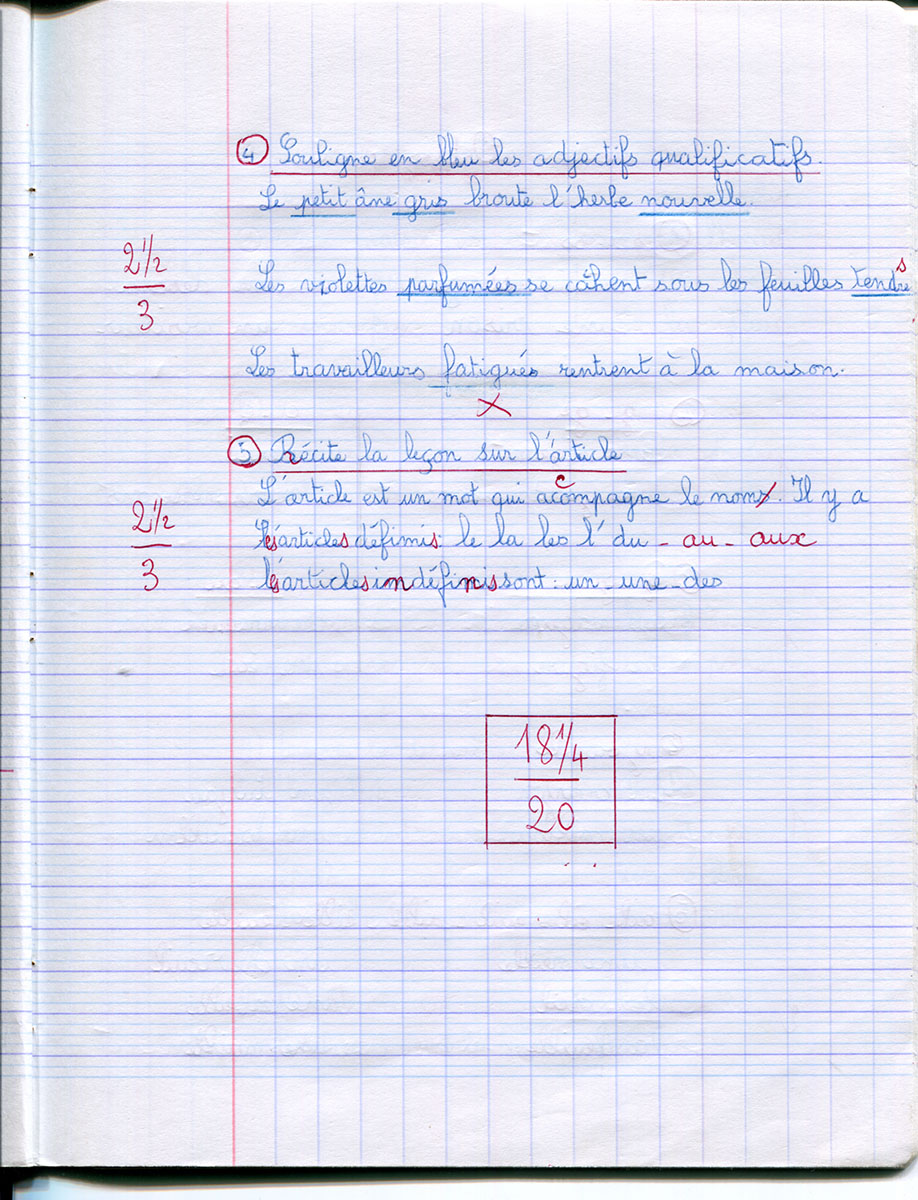 ④ Souligne en bleu les adjectifs qualificatifs.
Le petit âne gris broute l'herbe nouvelle.
2 1/2
3
Les violettes parfumées se câhent sous les feuilles tendres
Les travailleurs fatigués rentrent à la maison.
X
⑤ Récite la leçon sur l'article
L'article est un mot qui accompagne le nom. Il y a
2 1/2
3
les articles définis: le la les l' du - au - aux
les articles indéfinis sont: un - une - des
18 1/4
20